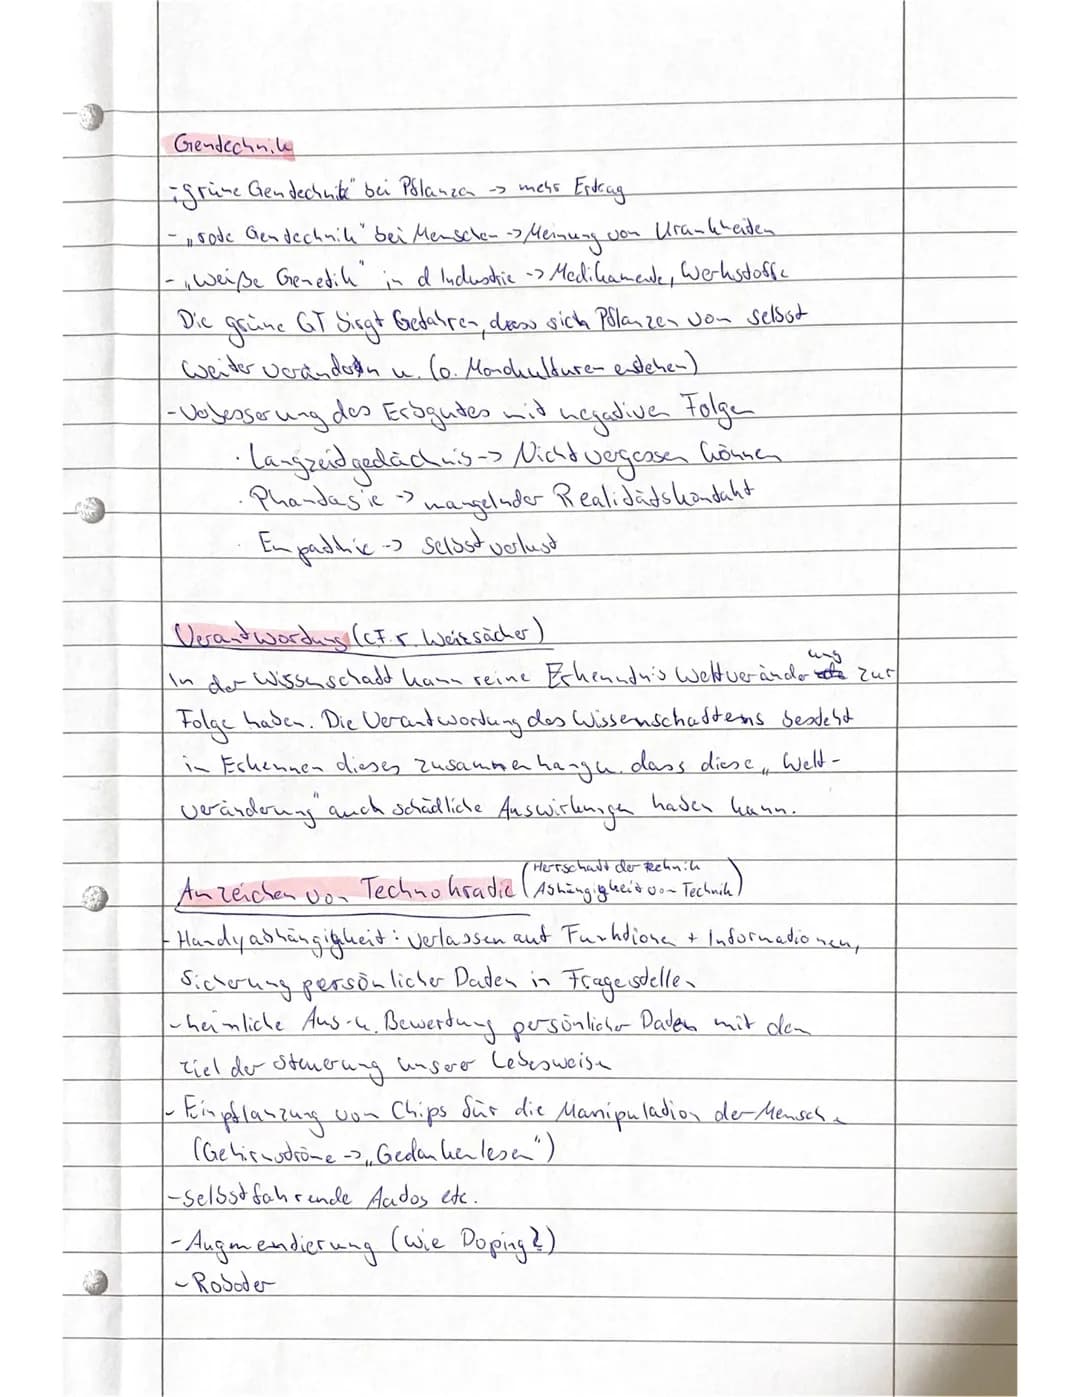 Gentechnik
- „grüne Gentechnik" bei Pflanzen -> mehr Ertrag
- „rote Gentechnik" bei Menschen -> Meinung von Krankheiten
- „Weiße Genetik" in d Industrie -> Medikamente, Werkstoffe
Die grüne GT birgt Gefahren, dass sich Pflanzen von selbst
weiter verändern u. (o. Monokulturen entstehen)
- Verbesserung des Erbgutes mit negativen Folgen
· Langzeitgedächnis -> Nicht vergessen können
· Phantasie -> mangelnder Realitätskontakt
· Empathie -> Selbstverlust
Verantwortung (C.F. v. Weizsäcker)
In der Wissenschaft kann reine Erkenntnis Weltveränderung zur
Folge haben. Die Verantwortung des Wissenschaftlers besteht
in Erkennen dieses zusammenhang u. dass diese „Welt-
veränderung" auch schädliche Auswirkungen haben kann.
Anzeichen von Technokratie (Herrschaft der Technik
Abhängigkeit von Technik)
- Handyabhängigkeit: verlassen auf Funktionen + Informationen,
Sicherung persönlicher Daten in Frage stellen
- heimliche Aus- u. Bewertung persönlicher Daten mit dem
Ziel der Steuerung unserer Lebesweise
- Einpflanzung von Chips für die Manipulation der Mensch
(Gehirnströme -> „Gedankenlesen")
- selbstfahrende Autos etc.
- Augmentierung (wie Doping?)
- Roboter